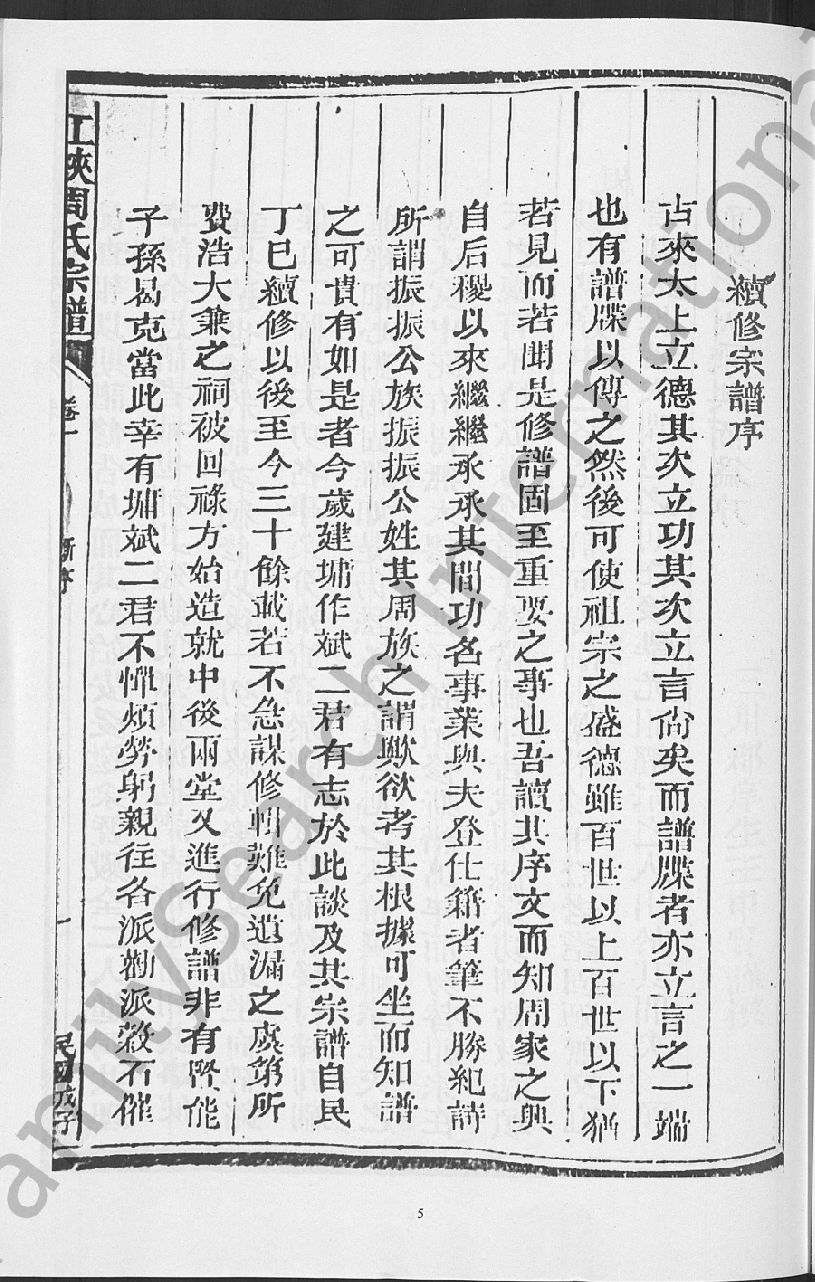 續修宗譜序
古來太上立德其次立功其次立言尙矣而譜牒者亦立言之一端
也有譜牒以傳之然後可使祖宗之盛德雖百世以上百世以下猶
若見而若聞是修譜固至重要之事也吾讀其序文而知周家之興
自后稷以來繼繼承承其間功名事業與夫登仕籍者筆不勝紀詩
所謂振振公族振振公姓其周族之謂歟欲考其根據可坐而知譜
之可貴有如是者今歲建墉作斌二君有志於此談及其宗譜自民
丁巳續修以後至今三十餘載若不急謀修輯難免遺漏之虞第所
費浩大兼之祠被回祿方始造就中後兩堂又進行修譜非有賢能
子孫曷克當此幸有墉斌二君不憚煩勞躬親往各派勸派穀石催
江峽周氏宗譜
卷一
新序
一
民國戊子
5
FamilySearch International